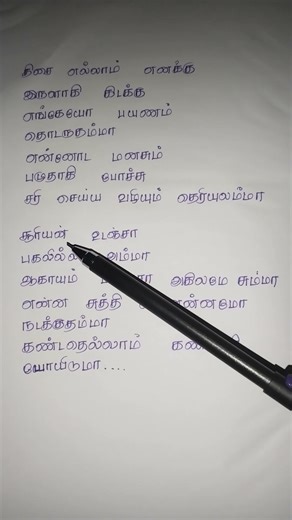 திசை எல்லாம் எனக்கு
இருளாகி கிடக்கு
எங்கேயோ பயணம்
தொடருதம்மா
என்னோட மனசும்
பழுதாகி போச்சு
சரி செய்ய வழியும் தெரியுலம்மா
சூரியன் உடஞ்சா
பகலில்ல அம்மா
ஆகாயம் அகிலமே சும்மா
என்ன சுத்தி
நடக்குதம்மா
கண்டதெல்லாம்
போயிடுமா....